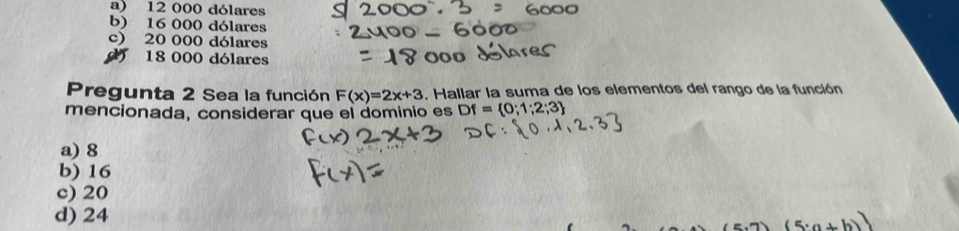 a) 12 000 dólares
b) 16 000 dólares
c) 20 000 dólares
d) 18 000 dólares
2000 . 3 = 6000
: 2400 - 6000
= 18 000 dólares
Pregunta 2 Sea la función F(x)=2x+3. Hallar la suma de los elementos del rango de la función
mencionada, considerar que el dominio es Df = {0;1;2;3}
F(x) 2x+3 Df: {0,1,2,3}
F(x)=
a) 8
b) 16
c) 20
d) 24
(5;7) (5;a+b)}